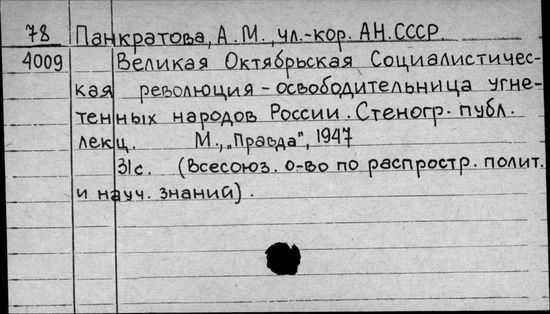 78 Панкратова, А.М., чл.-кор. АН.СССР.
4009 Великая Октябрьская Социалистичес-
кая революция - освободительница угне-
тенных народов России. Стеногр. публ.
лекц. М., „Правда", 1947
31с. (Всесоюз. о-во по распростр. полит.
и науч. знаний).